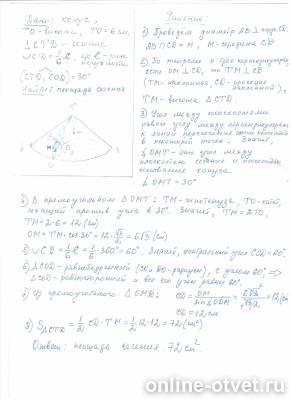 Дано: конус,
ТО - высота, ТО = 6 см,
△CTD - сечение
∪CD = 1/6 C, где C - длина
окружности
(CTD, COD) = 30°
Найти: площадь сечения
T
A
B
C
D
M
O
Решение
1) Проведем диаметр AB ⊥ хорде CD.
AB ∩ CD = M, M - середина CD
2) По теореме о трех перпендикулярах
если OM ⊥ CD, то TM ⊥ CD
(TM - наклонная, OM - проекция
наклонной),
TM - высота △CTD.
3) Угол между плоскостями
равен углу между перпендикулярами
к линии пересечения
в некоторой точке. Значит,
∠OMT - это угол между
плоскостью сечения и плоскостью
основания конуса.
∠OMT = 30°
4) В прямоугольном △OMT: TM - гипотенуза, ТО - катет,
лежащий против угла в 30°. Значит, TM = 2TO,
TM = 2·6 = 12 (см)
OM = TM·cos30° = 12·√3/2 = 6√3 (см)
5) ∪CD = 1/6 C = 1/6·360° = 60°. Значит, центральный угол COD = 60°.
6) △COD - равнобедренный (CO и DO - радиусы), с углом 60°, ⇒
△COD - равносторонний и все его углы равны 60°.
7) Из прямоугольного △OMD: OD = OM/sin60° = 6√3/(√3/2) = 12 (см)
CD = 12 см
8) S△CTD = 1/2 CD·TM = 1/2·12·12 = 72 (см²)
Ответ: площадь сечения 72 см²
online-otvet.ru